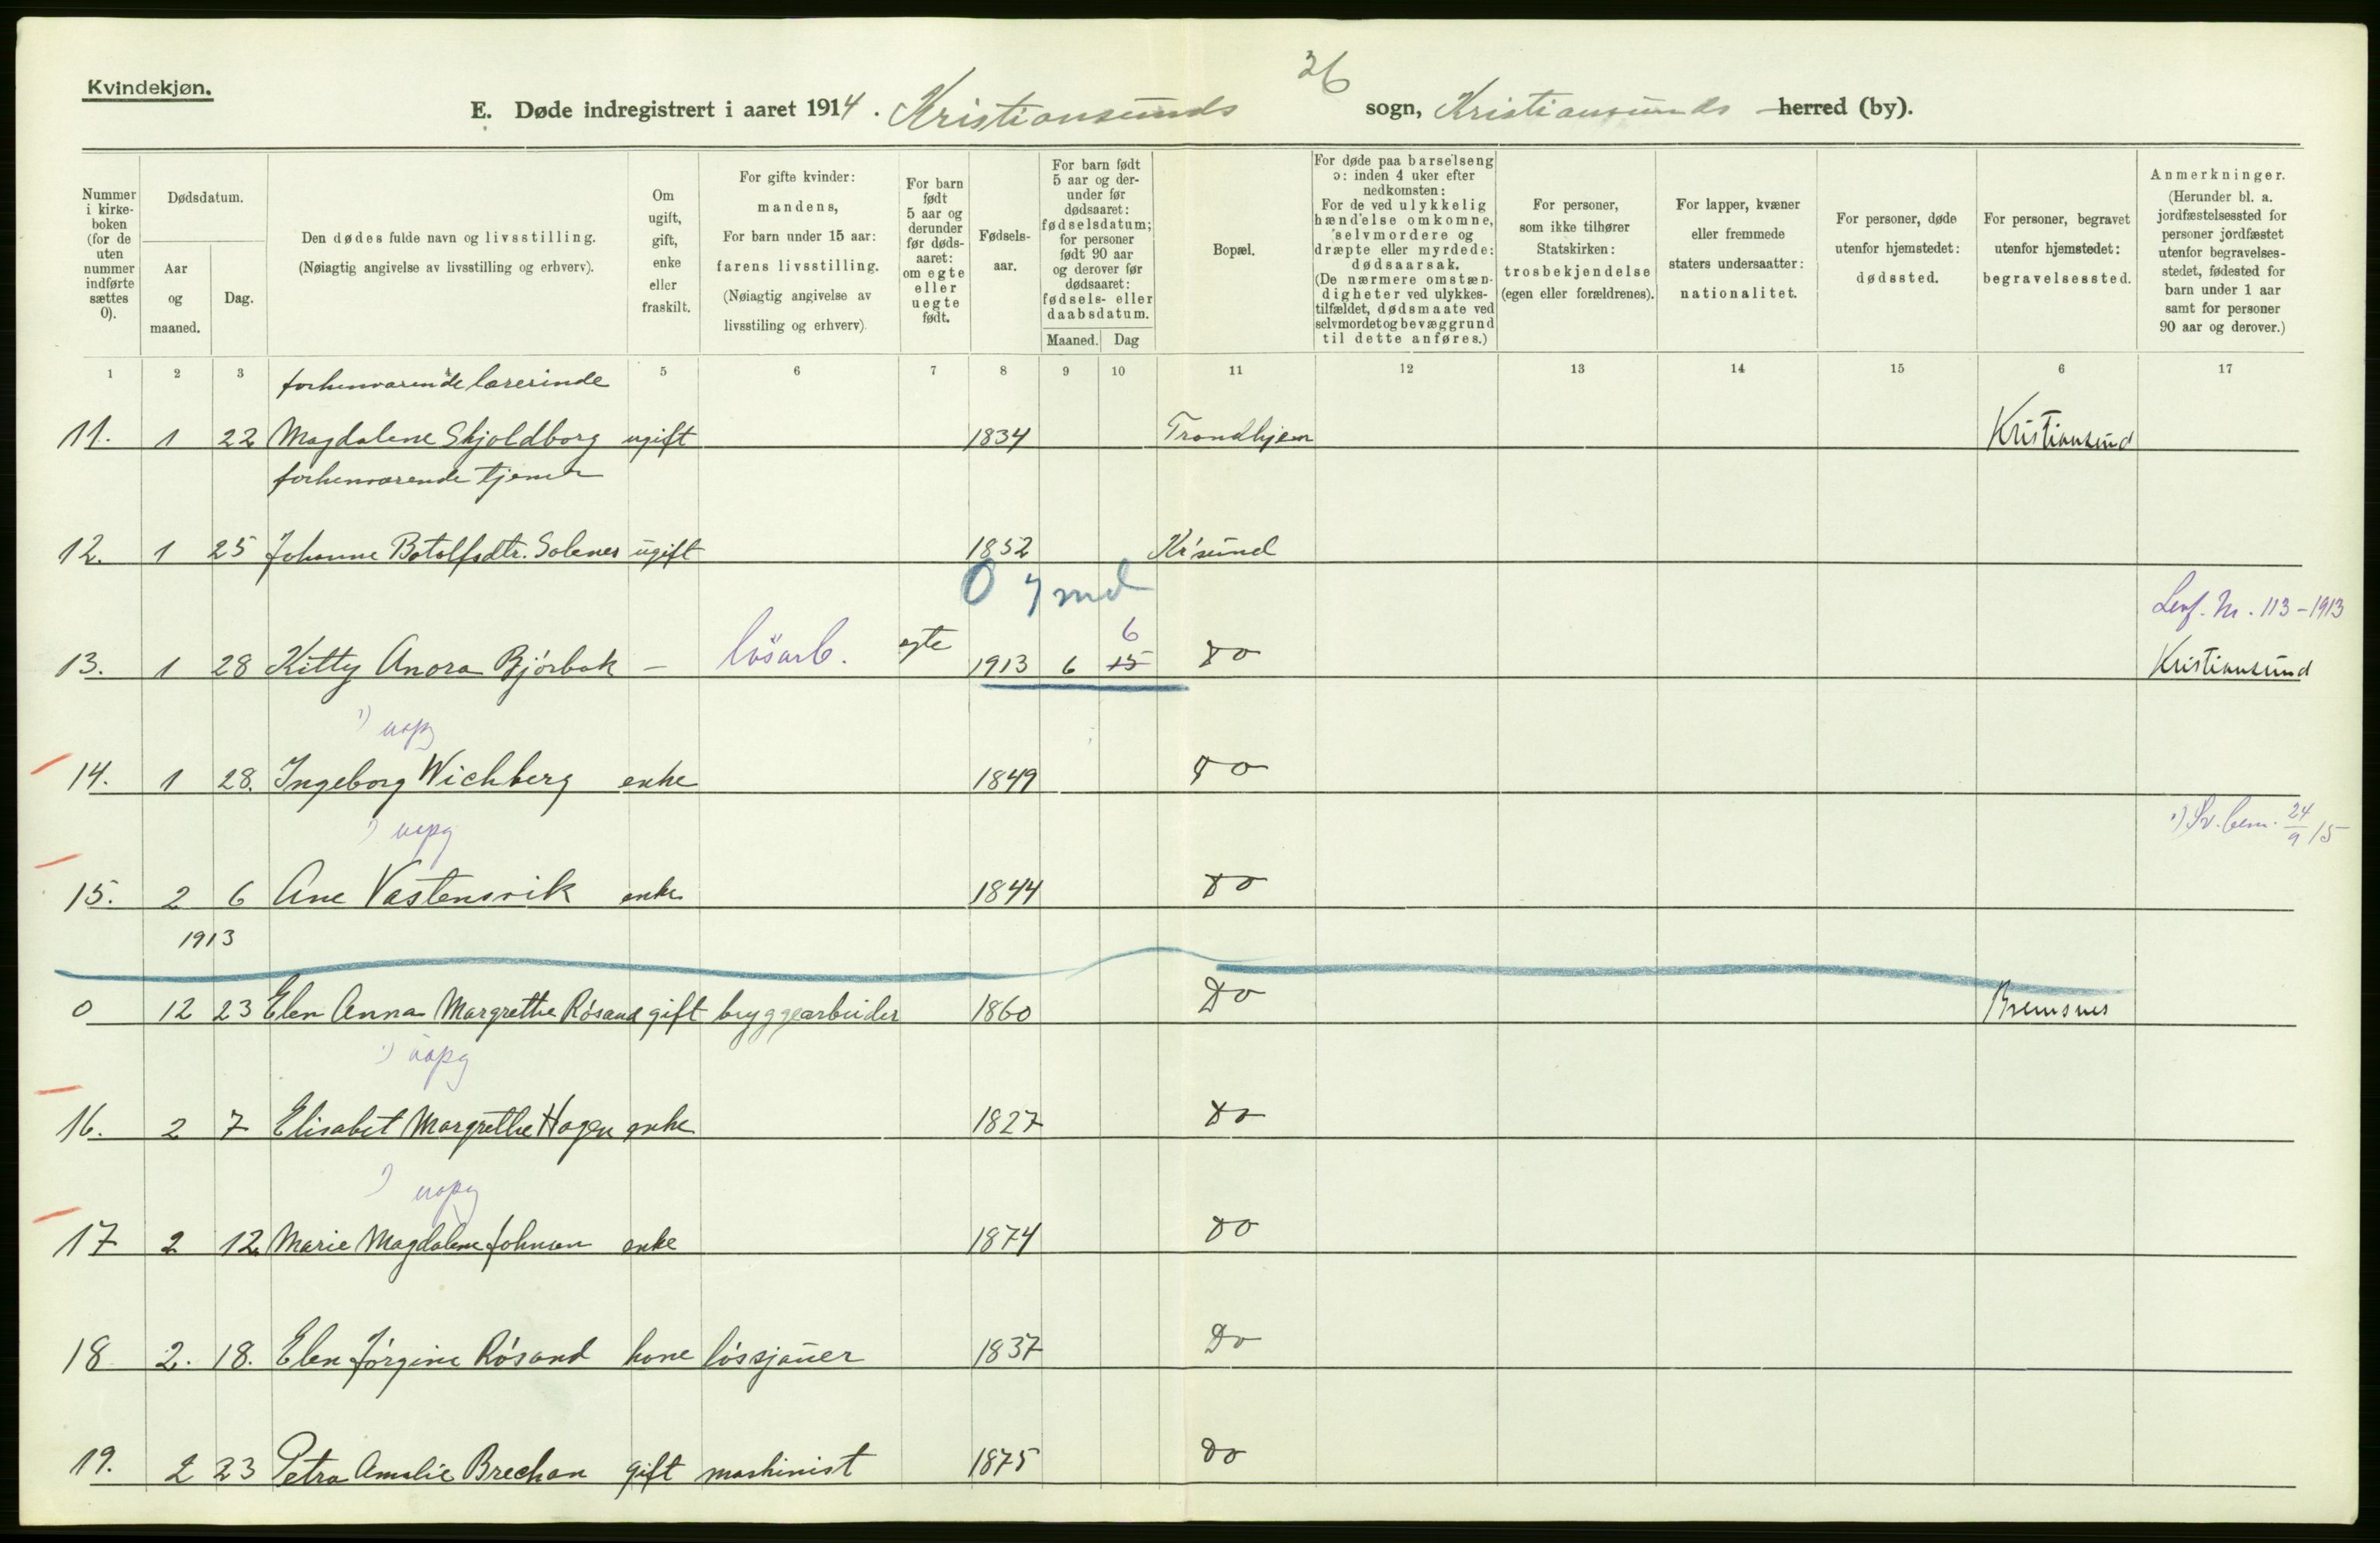 Kvindekjøn.
36
E. Døde indregistrert i aaret 1914. Kristiansunds sogn, Kristiansunds herred (by).
Nummer i kirkeboken (for de uten nummer indførte sættes 0).
Dødsdatum.
Aar og maaned.
Dag.
Den dødes fulde navn og livsstilling.
(Nøiagtig angivelse av livsstilling og erhverv).
Om ugift, gift, enke eller fraskilt.
For gifte kvinder: mandens,
For barn under 15 aar: farens livsstilling.
(Nøiagtig angivelse av livsstiling og erhverv)
For barn født 5 aar og derunder før dødsaaret: om egte eller uegte født.
Fødselsaar.
For barn født 5 aar og derunder før dødsaaret: fødselsdatum; for personer født 90 aar og derover før dødsaaret: fødsels- eller daabsdatum.
Maaned. Dag
Bopæl.
For døde paa barselseng ɔ: inden 4 uker efter nedkomsten:
For de ved ulykkelig hændelse omkomne, selvmordere og dræpte eller myrdede: dødsaarsak.
(De nærmere omstændigheter ved ulykkestilfældet, dødsmaate ved selvmordet og bevæggrund til dette anføres.)
For personer, som ikke tilhører Statskirken: trosbekjendelse (egen eller forældrenes).
For lapper, kvæner eller fremmede staters undersaatter: nationalitet.
For personer, døde utenfor hjemstedet: dødssted.
For personer, begravet utenfor hjemstedet: begravelsessted.
Anmerkninger.
(Herunder bl. a. jordfæstelsessted for personer jordfæstet utenfor begravelsesstedet, fødested for barn under 1 aar samt for personer 90 aar og derover.)
1 2 3 4 5 6 7 8 9 10 11 12 13 14 15 6 17
forhenvarende lærerinde
11. 1 22 Magdalene Skjoldborg ugift 1834 Trondhjem Kristiansund
forhenværende tjener
12. 1 25 Johanne Botolfsdtr. Solenes ugift 1852 Kr'sund
0 7 md
Lev. Nr. 113-1913
6
13. 1 28 Kitty Anora Bjørbak - løsarb. egte 1913 6 15 do Kristiansund
1) uopg
14. 1 28. Ingeborg Wichberg enke 1849 do
1) uopg
1) Sv. bem. 24/9 15
15. 2 6 Ane Vastensvik enke 1844 do
1913
0 12 23 Elen Anna Margrethe Røsand gift bryggearbeider 1860 Do Bremsnes
1) uopg
16. 2 7 Elisabet Margrethe Hagen enke 1827 do
1) uopg
17 2 12 Marie Magdalene Johnsen enke 1874 do
18 2. 18. Elen Jørgine Røsand kone løssjauer 1837 Do
19. 2 23 Petra Amalie Brechan gift maskinist 1875 do